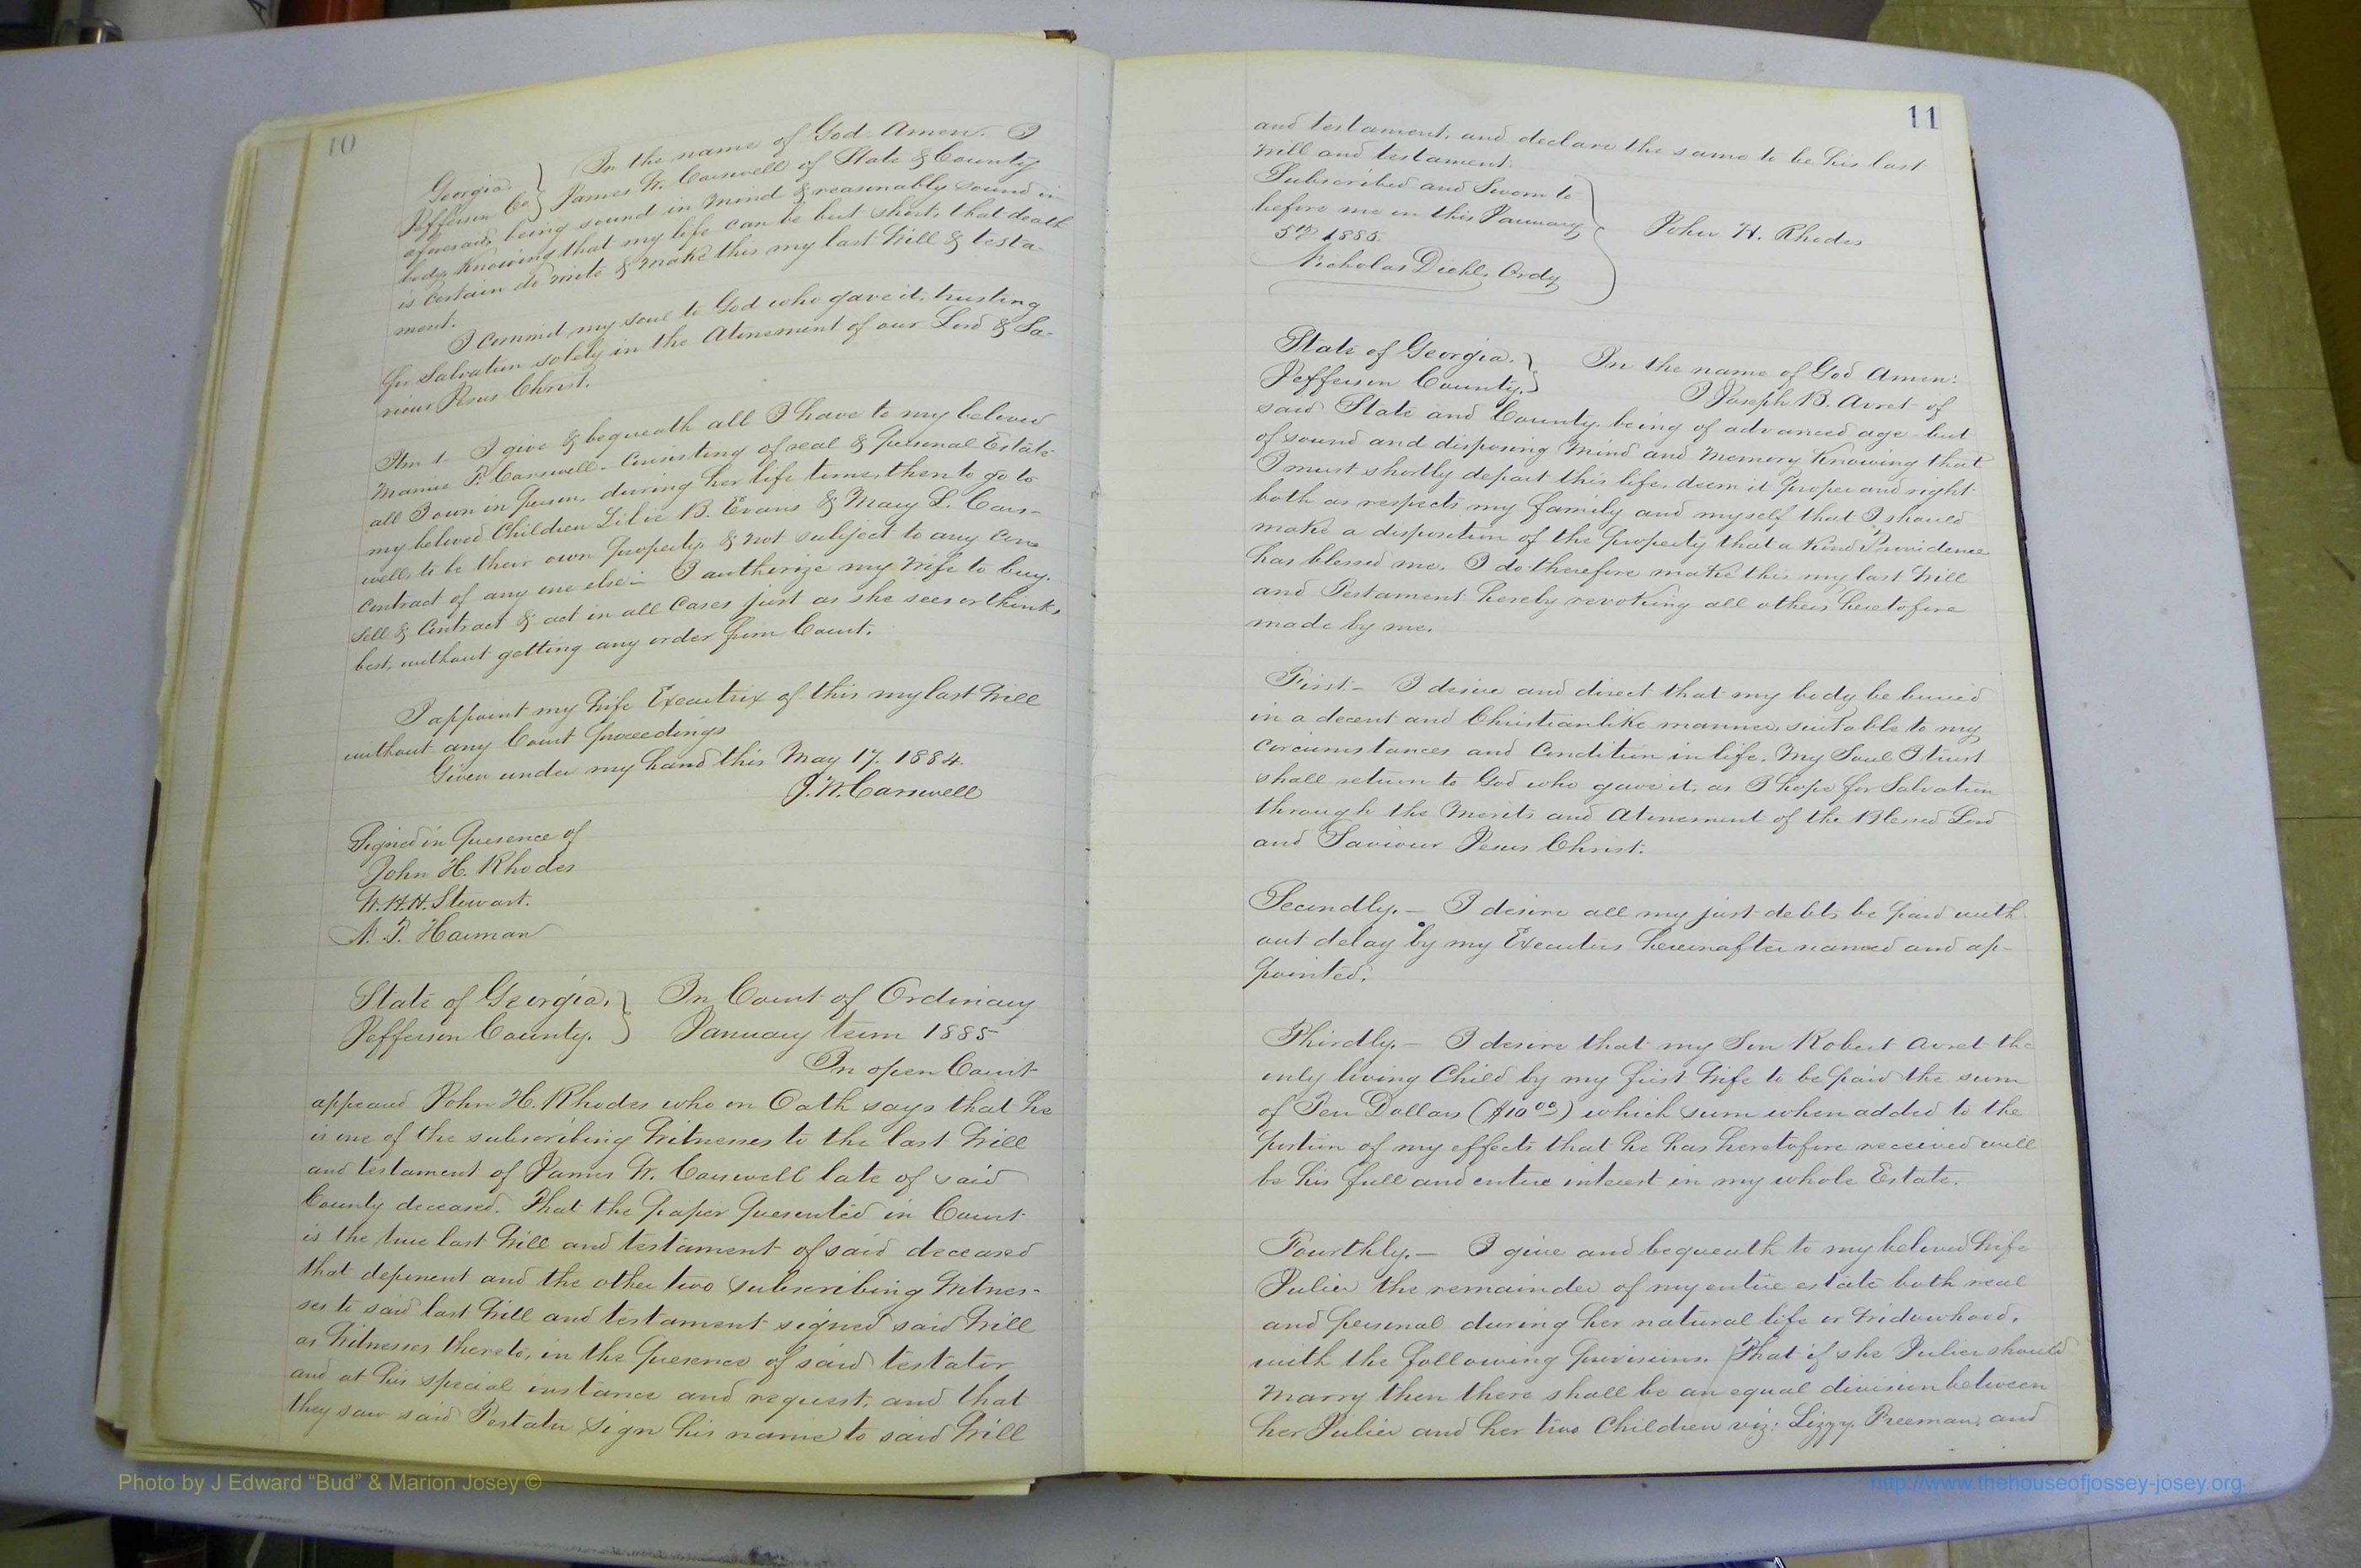 10
Georgia } In the name of God Amen. I
Jefferson Co } James W. Carswell of State & County
aforesaid, being sound in mind & reasonably sound in
body, Knowing that my life can be but short, that death
is certain do write & make this my last Will & testa-
ment.
I commit my soul to God who gave it, trusting
for Salvation solely in the Atonement of our Lord & Sa-
viour Jesus Christ.
Item 1- I give & bequeath all I have to my beloved
Carswell- Consisting of real & personal Estate
all I own in person, during her life time, then to go to
my beloved Children Lilie B. Evans & Mary L. Cars-
well, to be their own property & not subject to any Con
contract of any one else:- I authorize my Wife to buy.
sell & Contract & act in all Cases just as she sees or thinks
best, without getting any order from Court.
I appoint my Wife Executrix of this my last Will
without any Court proceedings
Given under my hand this May 17. 1884.
J. W. Carswell
Signed in Presence of
John H. Rhodes
W. H. H. Stewart.
State of Georgia. } In Court of Ordinary
Jefferson County. } January term 1885
In open Court
appeared John H. Rhodes who on Oath says that he
is one of the subscribing Witnesses to the last Will
and testament of James W. Carswell late of said
County deceased. That the paper presented in Court
is the true last Will and testament of said deceased
that deponent and the other two subscribing Witnes-
ses to said last Will and testament signed said Will
as Witnesses thereto, in the presence of said testator
and at his special instance and request, and that
they saw said Testator sign his name to said Will
11
and testament, and declare the same to be his last
Will and testament.
Subscribed and Sworn to
before me on this January
5th 1885.
John H. Rhodes
Nicholas Diehl, Ordy
State of Georgia. } In the name of God Amen:
Jefferson County. } I Joseph B. Avret of
said State and County, being of advanced age but
of sound and disposing Mind and Memory Knowing that
I must shortly depart this life, deem it proper and right
both as respects my family and myself that I should
make a disposition of the property that a Kind Providence
has blessed me. I do therefore make this my last Will
and Testament hereby revoking all others heretofore
made by me.
First- I desire and direct that my body be buried
in a decent and Christianlike manner, suitable to my
circumstances and Condition in life. My Soul I trust
shall return to God who gave it, as I hope for Salvation
through the Merits and Atonement of the Blessed Lord
and Saviour Jesus Christ.
Secondly.- I desire all my just debts be paid with
out delay by my Executors hereinafter named and ap-
pointed.
Thirdly.- I desire that my Son Robert Avret the
only living Child by my first Wife to be paid the sum
of Ten Dollars ($10.00) which sum when added to the
portion of my effects that he has heretofore received will
be his full and entire interest in my whole Estate.
Fourthly.- I give and bequeath to my beloved Wife
Julier the remainder of my entire estate both real
and personal during her natural life or Widowhood,
with the following provisions. That if she Julier should
marry then there shall be an equal division between
her Julier and her two Children viz: Lizzy Freeman, and
Photo by J Edward “Bud” & Marion Josey ©
http://www.thehouseofjossey-josey.org